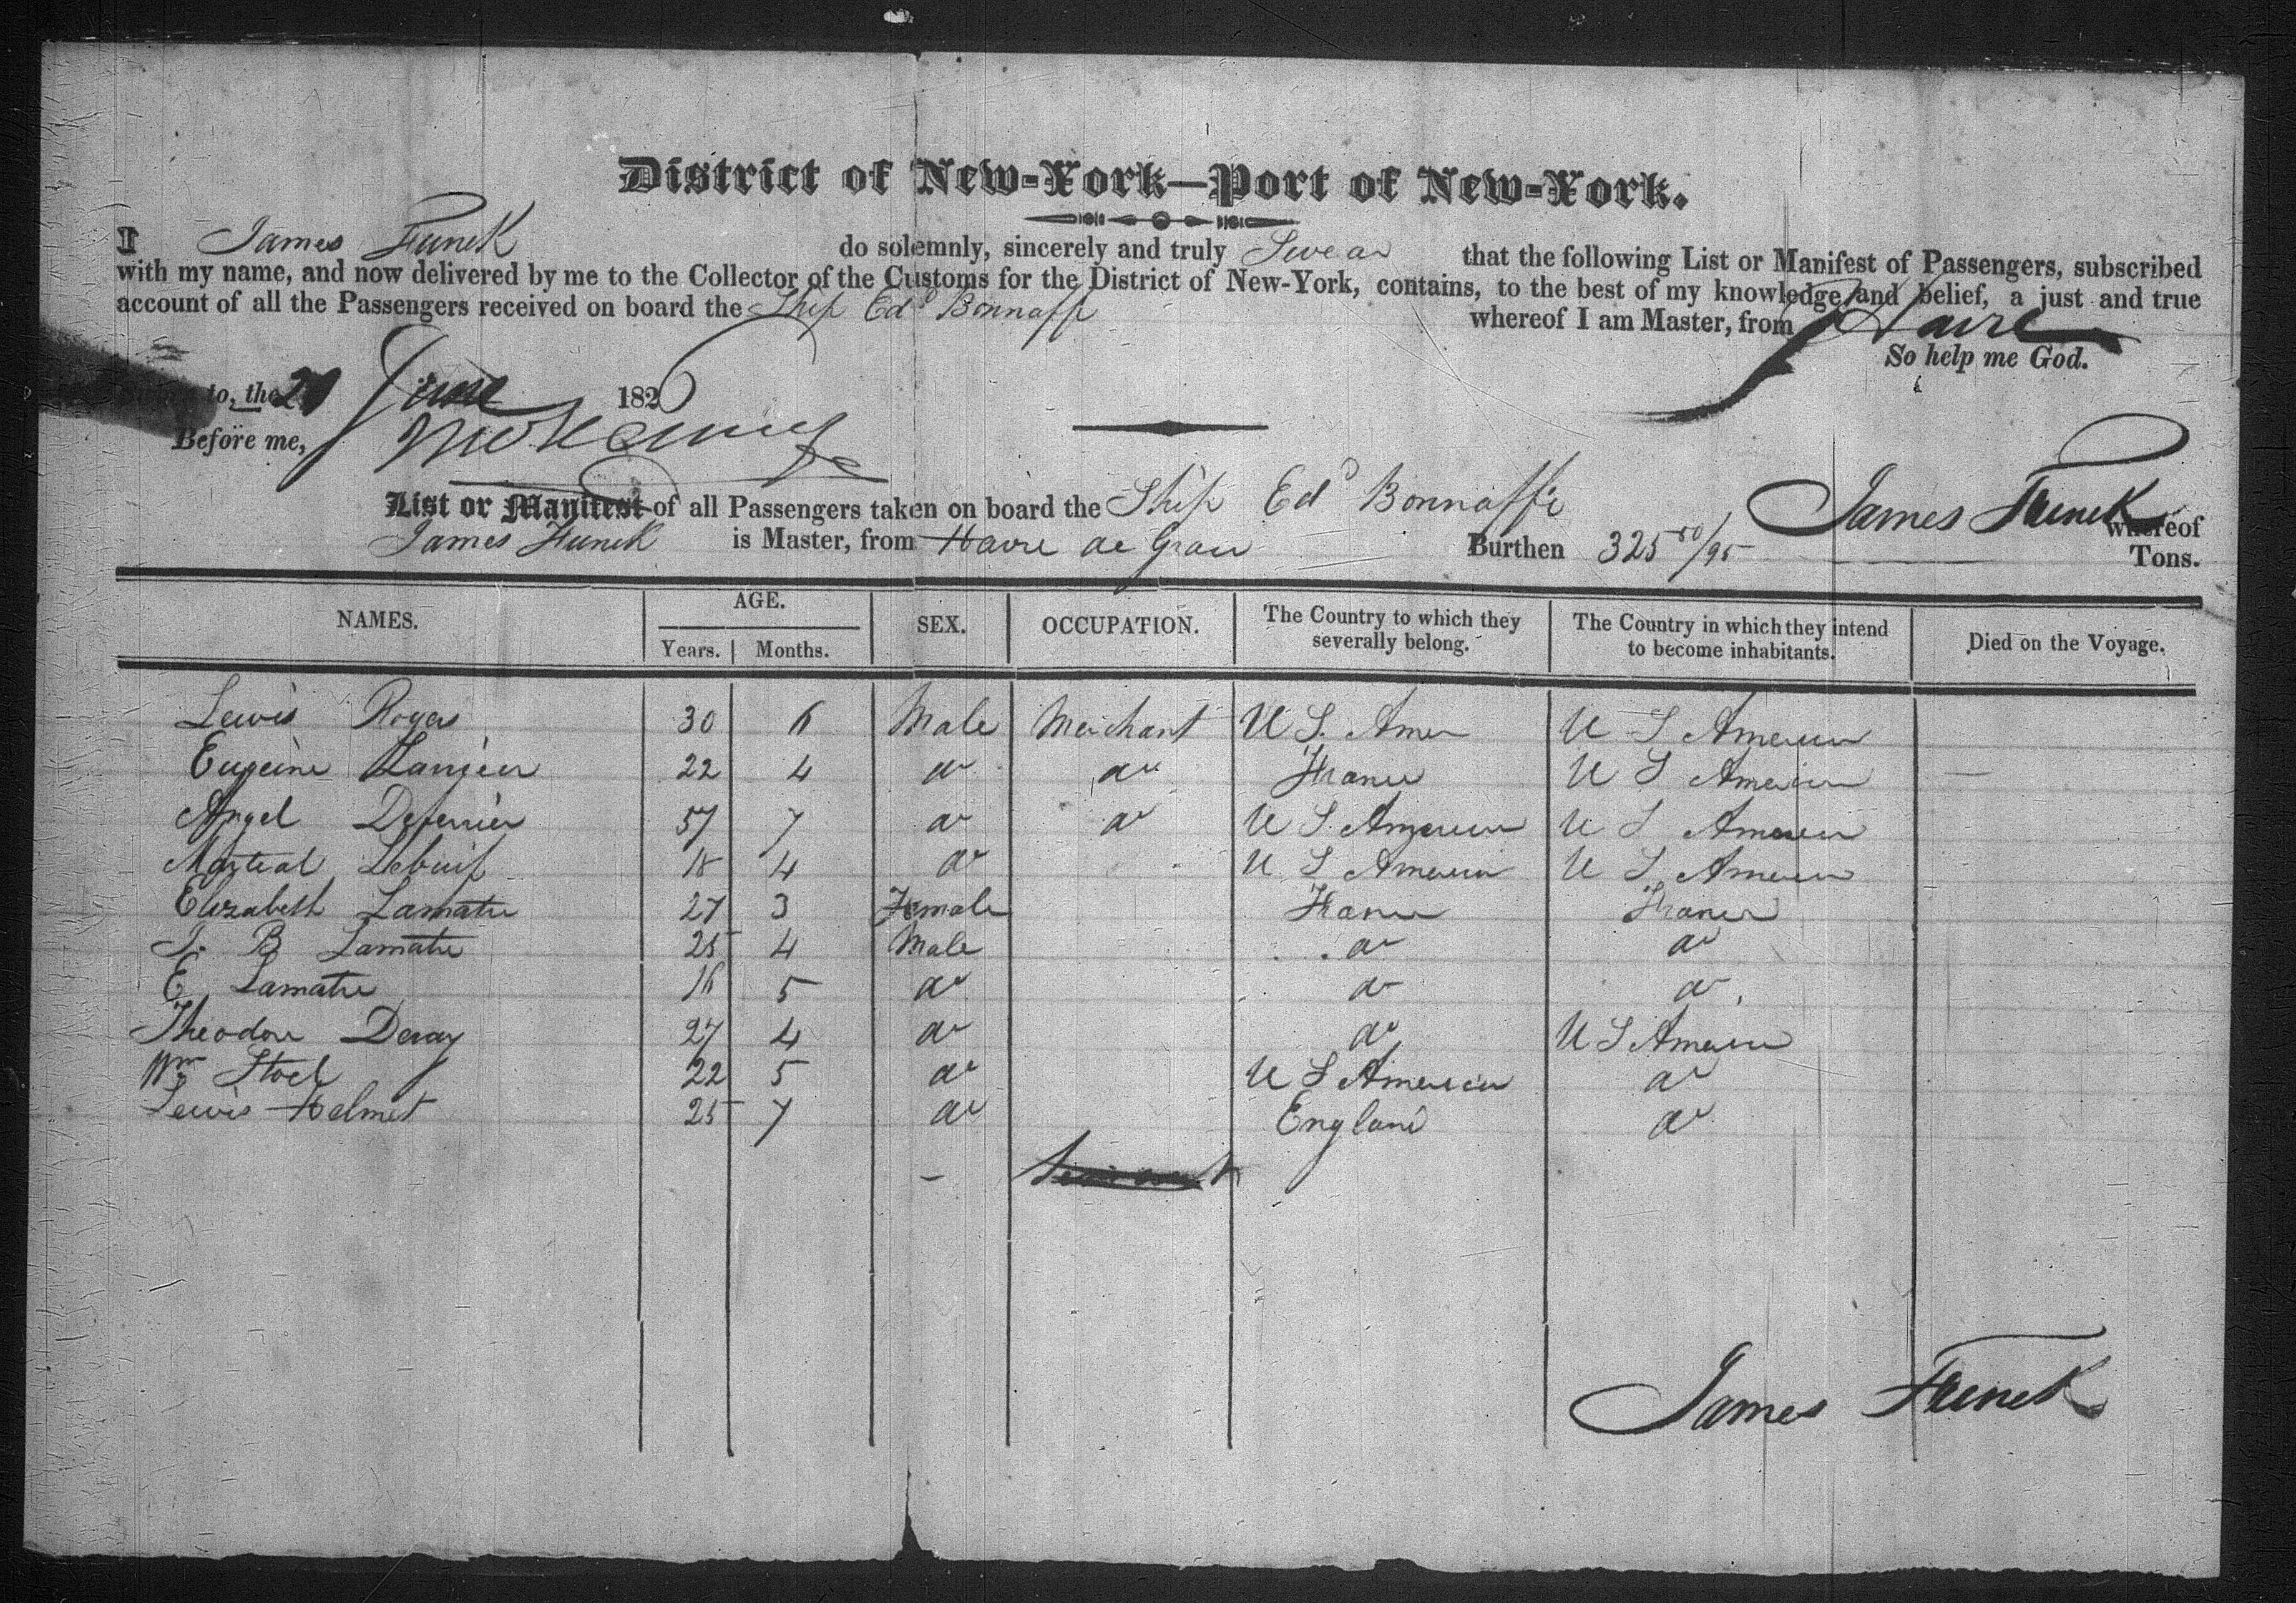 District of New-York—Port of New-York.
I James Funck do solemnly, sincerely and truly Swear that the following List or Manifest of Passengers, subscribed
with my name, and now delivered by me to the Collector of the Customs for the District of New-York, contains, to the best of my knowledge and belief, a just and true
account of all the Passengers received on board the Ship Edd Bonnaffe whereof I am Master, from Havre
So help me God.
to, the 21 June 1826
Before me,
James Funck
List or Manifest of all Passengers taken on board the Ship Edd Bonnaffe whereof
James Funck is Master, from Havre de Grace Burthen 325 50/95 Tons.
NAMES. AGE. SEX. OCCUPATION. The Country to which they severally belong. The Country in which they intend to become inhabitants. Died on the Voyage.
Years. Months.
Lewis Rogers 30 6 Male Merchant U S. Amer U S America
Eugeine 22 4 do do France U S America —
Angel 57 7 do do U S. America U S America
Martial 18 4 do U S America U S America
Elizabeth Lamatre 27 3 Female France France
J. B Lamatre 25 4 Male do do
E Lamatre 16 5 do do do
Theodore Deray 27 4 do do U S America
Wm Stoel 22 5 do U S America do
Lewis Helmet 25 7 do England do
James Funck